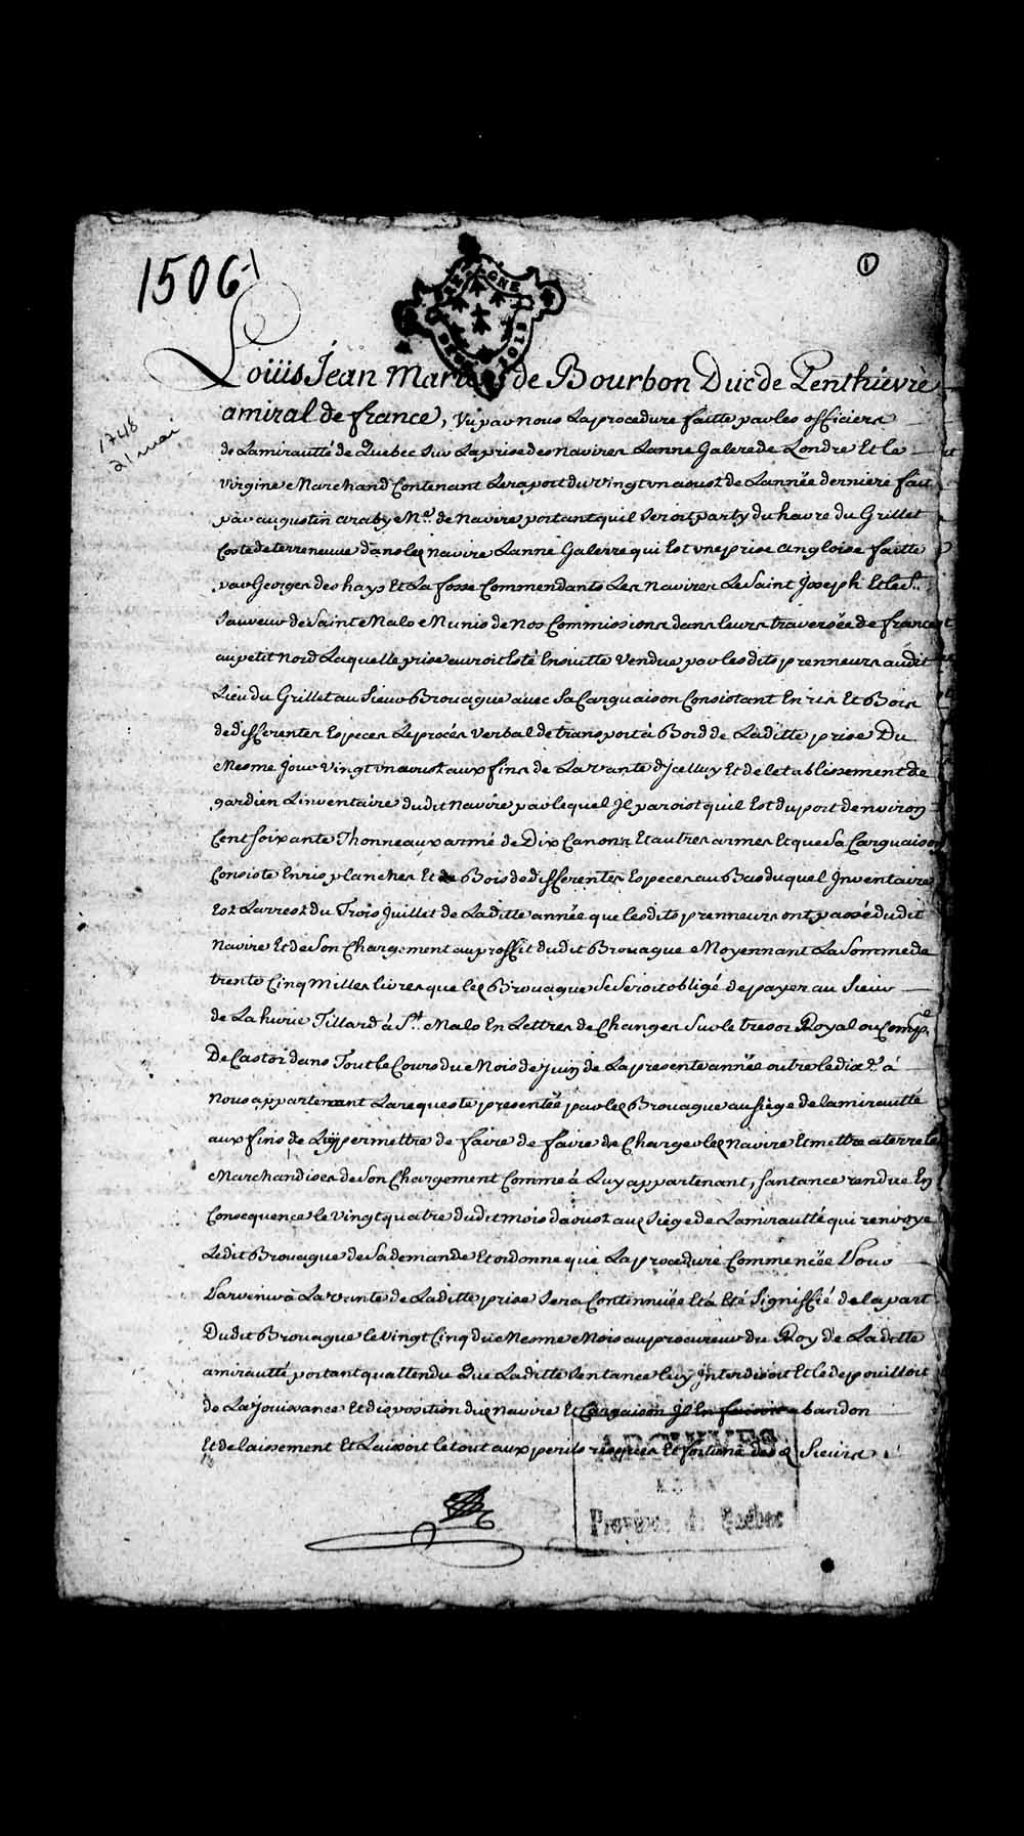 1506-1
1
BRETAGNE
DEUX SOLS
Loüis Jean Marie de Bourbon Duc de Penthievre
amiral de france, Vû par nous La procedure faitte par les officiers
1748
21 mai
de Lamirautté de Quebec Sur La prise des navires Lanne Galere de Londre Et le
Virgine Marchand Contenant Le raport du vingt un aoust de Lannëe derniere fait
par augustin araby Me. de Navire portant quil Seroit party du havre du Grillet
Coste de terreneuve dans leq navire Lanne Galerre qui Est une prise angloise faitte
par Georges des hays Et La fosse Commendants Les Navires Le Saint Joseph Et le St.
Sauveur de Saint Malo Munis de Nos Commissions dans leurs traversëe de france
au petit Nord Laquelle prise auroit Esté Ensuitte Vendue par les dits prenneurs audit
Lieu du Grillet au Sieur Brouague avec Sa Carguaison Consistant En ris Et Bois
de differentes Especes Le procés Verbal de transport à Bord de Laditte prise Du
Mesme Jour Vingt un aoust aux fins de La vante dJcelluy Et de letablissement de
gardien Linventaire dudit Navire par lequel Jl paroist quil Est du port denviron
Cent soixante Thonneaux armé de Dix Canons Et autres armes Et que Sa Carguaison
Consiste En ris planches Et de Bois de differentes Especes au Bas duquel Inventaire
Est Larrest du Trois Juillet de Laditte année que lesdits prenneurs ont passé dudit
Navire Et de Son Chargement au proffit dudit Brouague Moyennant La Somme de
trente Cinq Milles livres que leq Brouague Se Seroit obligé de payer au Sieur
de La hurie Tillard à St. Malo En Lettres de Changes Sur le tresor Royal ou Compe.
De Castor dans Tout le Cours du Mois de Juin de La presente annëe outre le dixe. à
Nous appartenant La requeste presentëe par leq Brouague au siège de lamirautté
aux fins de Luy permettre de faire de faire de Charger leq Navire Et mettre a terre les
Marchandises de Son Chargement Comme à Luy appartenant, santance rendue En
Consequence le Vingt quatre dudit mois daoust aud Siège de Lamirautté qui renvoye
Ledit Brouague de Sa demande Et ordonne que La procedure Commencëe Pour
Parvenir à La vente de Laditte prise Sera Continnuée Et à Eté Signiffié de la part
Dudit Brouague le vingt Cinq du Mesme Mois au procureur du Roy de Laditte
amirautté portant quattendu Que Laditte Sentance luy Jnterdisoit Et le depouilloit
de La Jouissance Et disposition duq Navire Et Cargaison Jl En faisoit abandon
Et delaissement Et Laissoit le tout aux perils risques Et fortune des q Sieurs
ARCHIVES
DE LA
Province de Québec